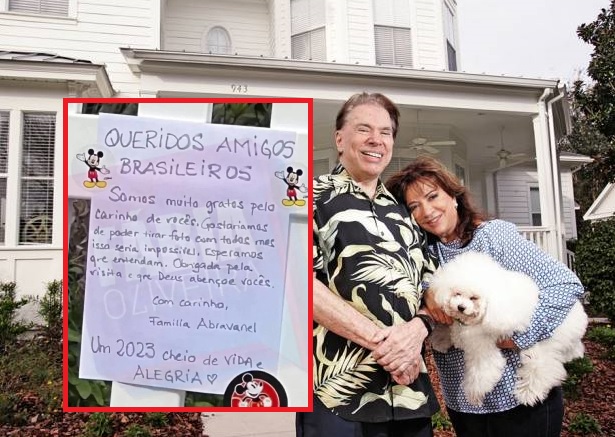 943
QUERIDOS AMIGOS
BRASILEIROS
Somos muito gratos pelo
carinho de vocês. Gostaríamos
de poder tirar foto com todos mas
isso seria impossível. Esperamos
que entendam. Obrigada pela
visita e que Deus abençoe vocês.
Com carinho,
Familia Abravanel
Um 2023 cheio de VIDA e
ALEGRIA ♡